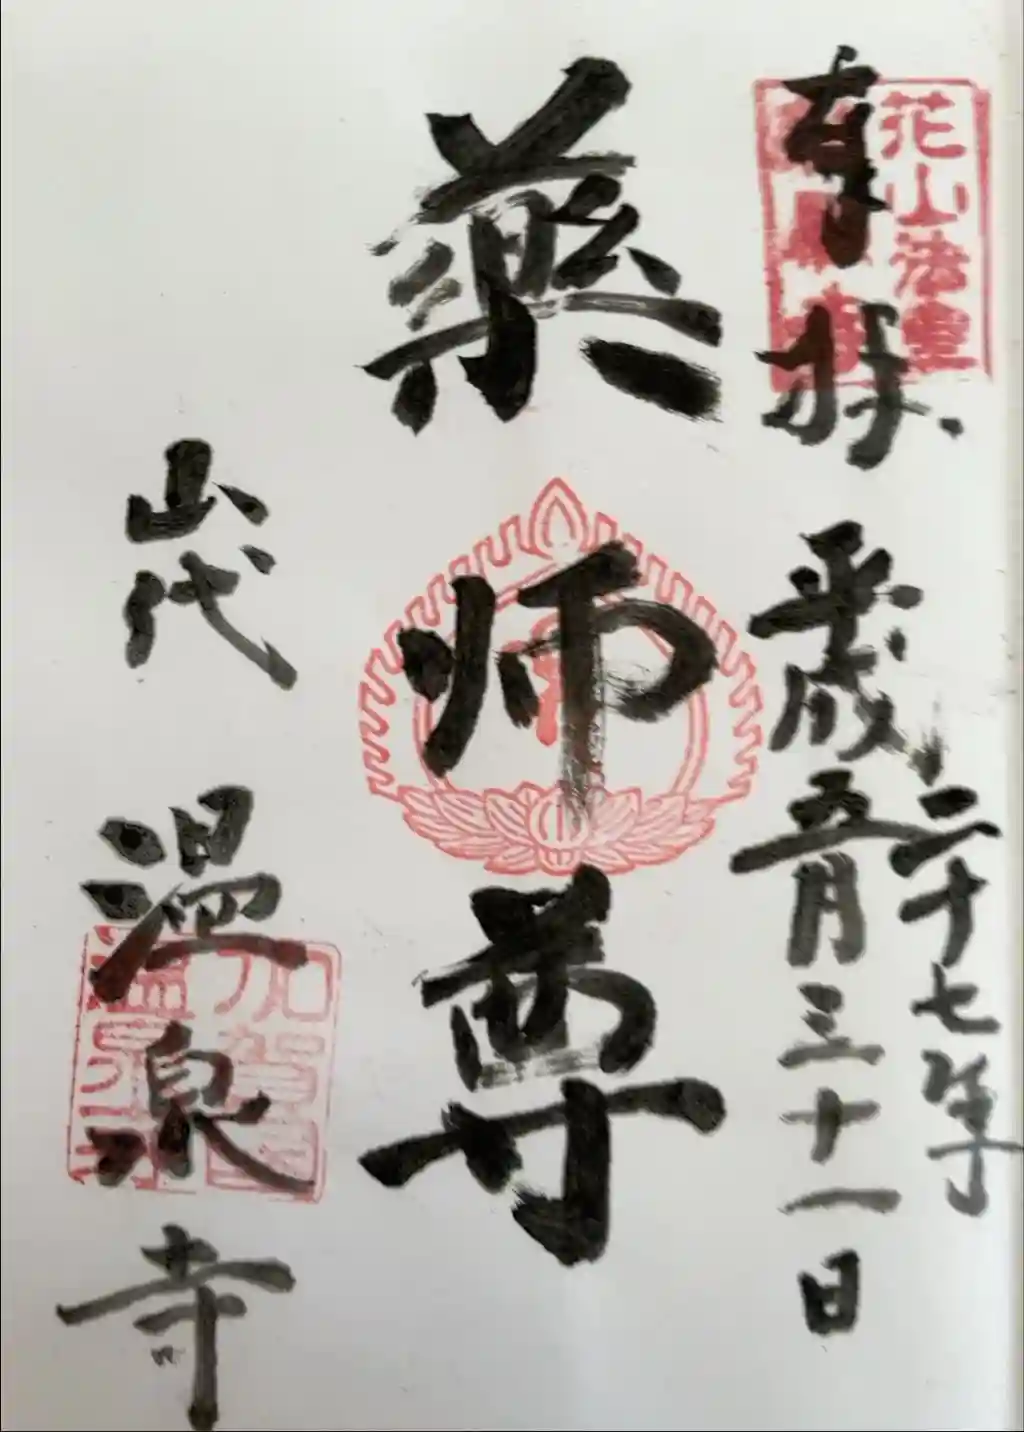 奉拝
花山法皇
平成二十七年
五月三十一日
薬师尊
山代
温泉寺
加賀
温泉寺